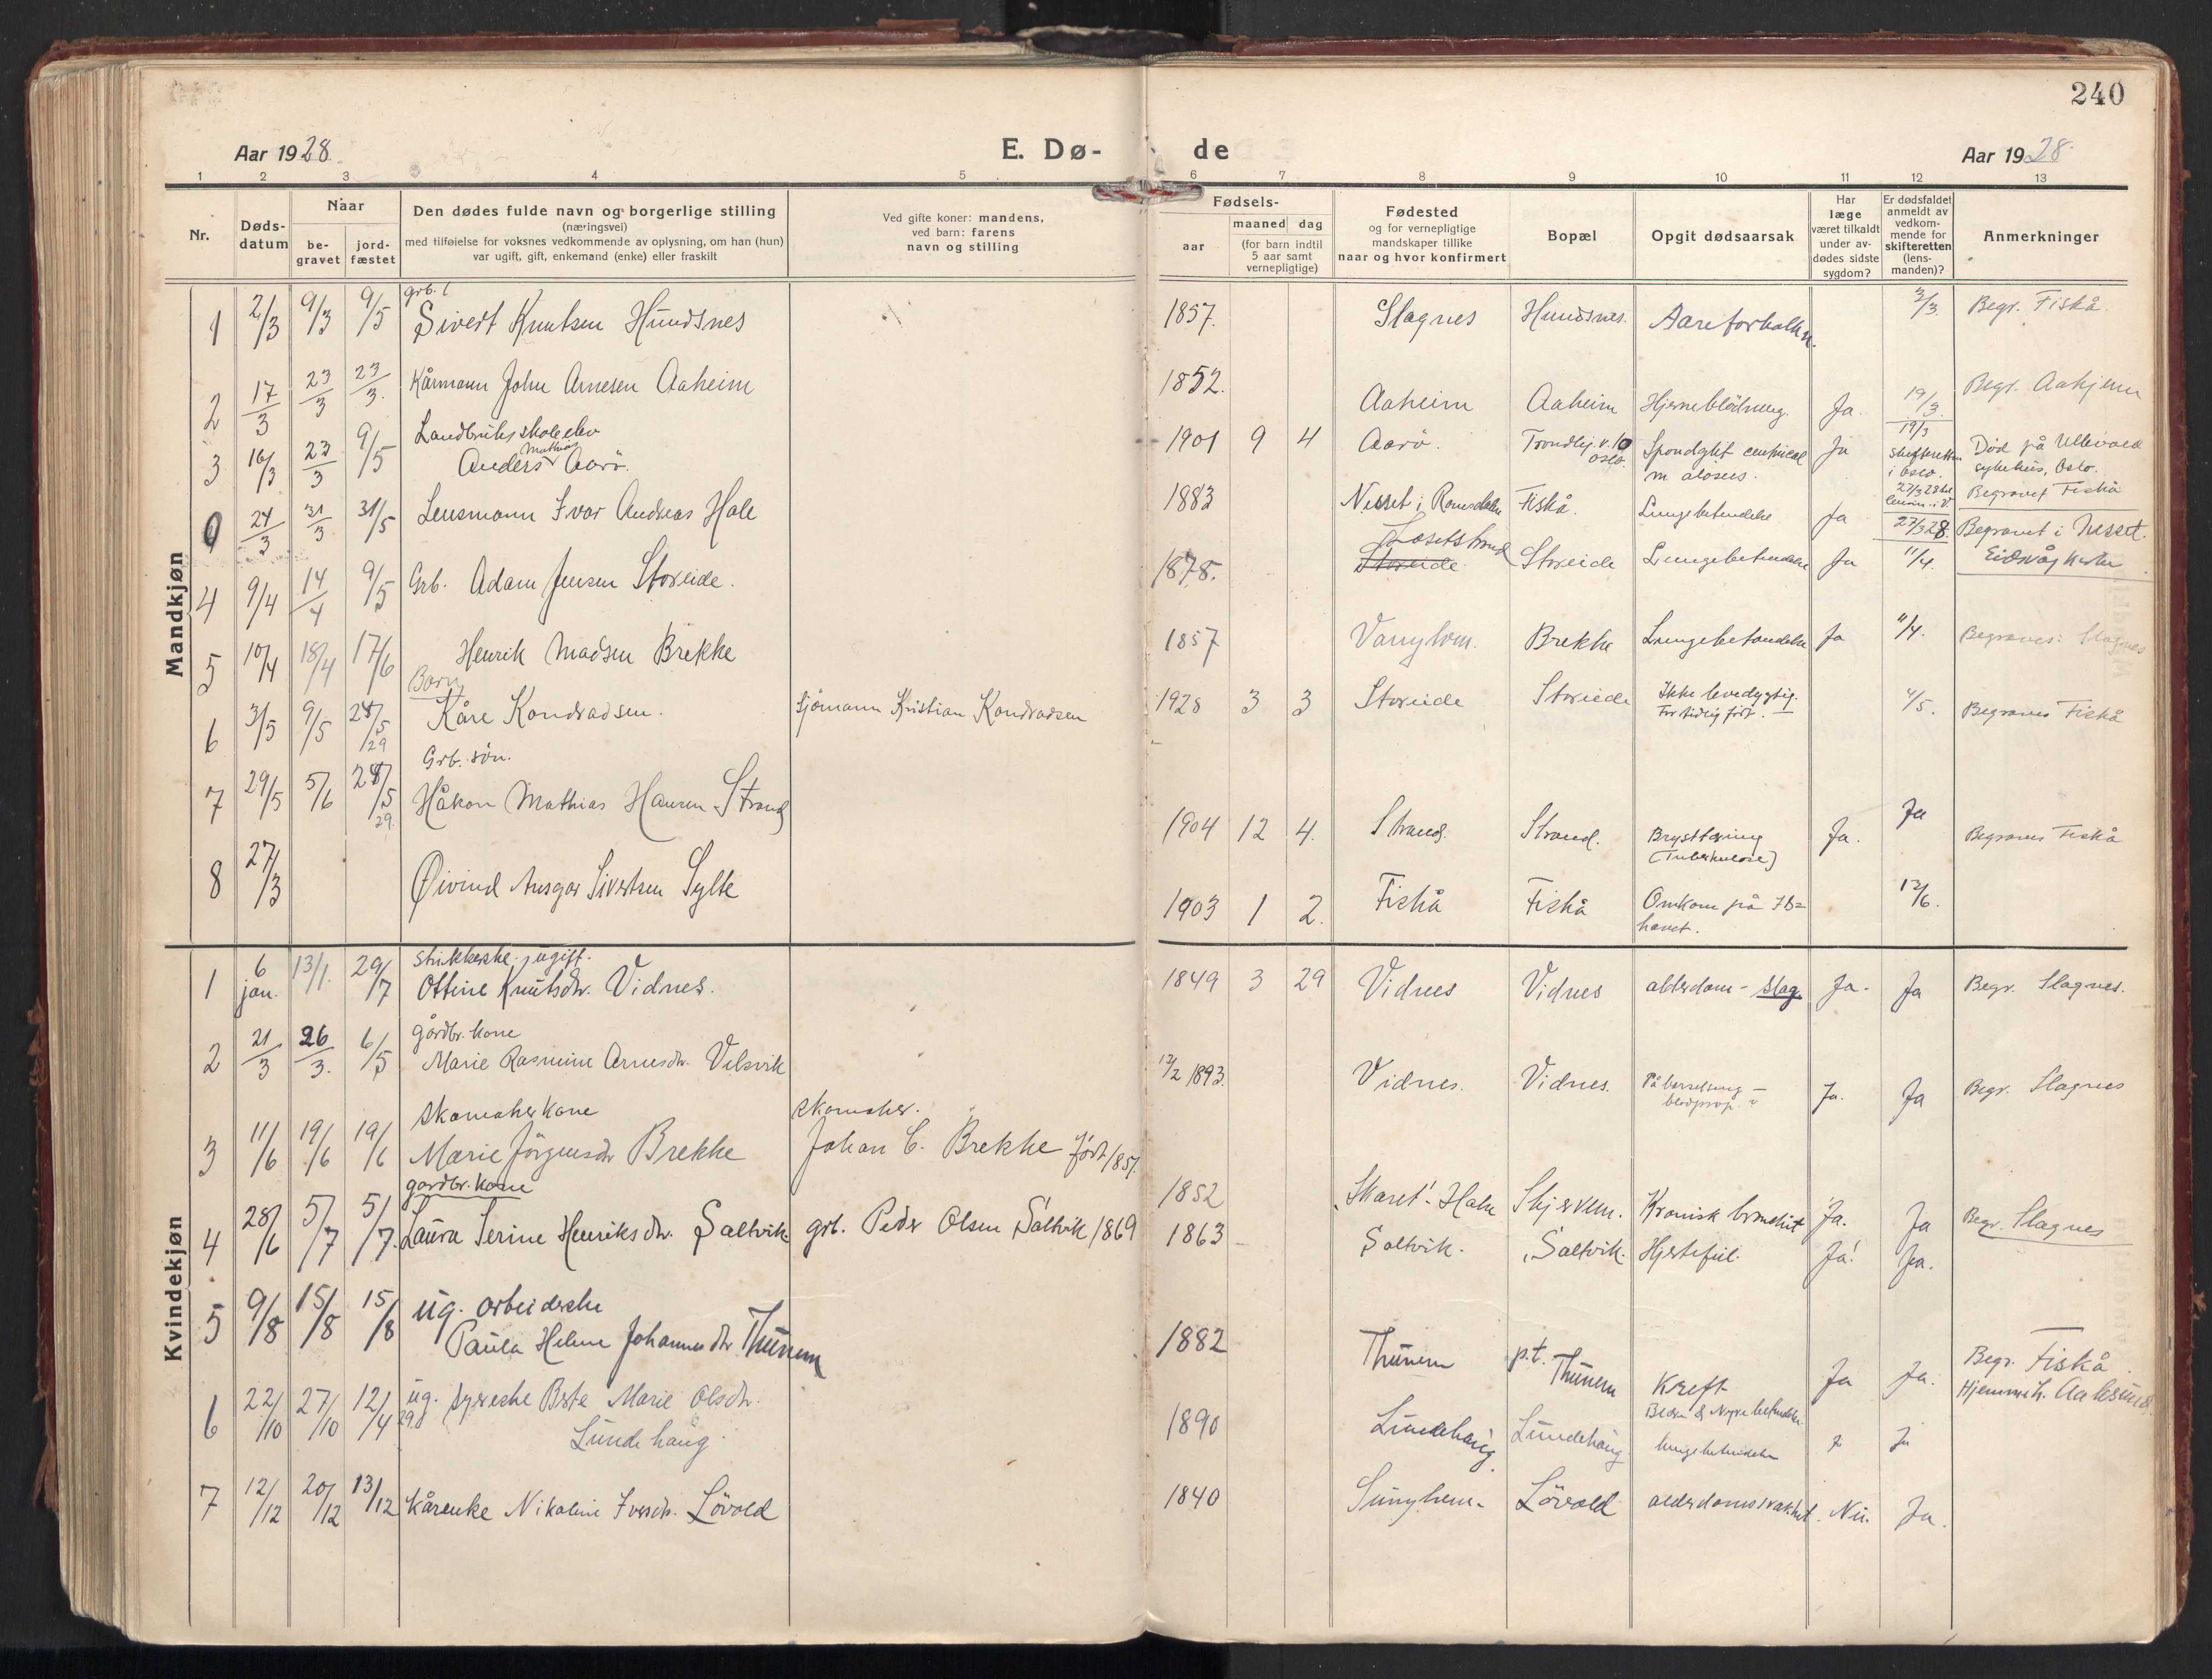 240
Aar 1928
E. Dø-
de
Aar 1928
1 2 3 4 5 6 7 8 9 10 11 12 13
Nr.
Døds-
datum
Naar
be-
gravet
jord-
fæstet
Den dødes fulde navn og borgerlige stilling
(næringsvei)
med tilføielse for voksnes vedkommende av oplysning, om han (hun)
var ugift, gift, enkemand (enke) eller fraskilt
Ved gifte koner: mandens,
ved barn: farens
navn og stilling
Fødsels-
aar
maaned dag
(for barn indtil
5 aar samt
vernepligtige)
Fødested
og for vernepligtige
mandskaper tillike
naar og hvor konfirmert
Bopæl
Opgit dødsaarsak
Har
læge
været tilkaldt
under av-
dødes sidste
sygdom?
Er dødsfaldet
anmeldt av
vedkom-
mende for
skifteretten
(lens-
manden)?
Anmerkninger
Mandkjøn
grb.
1 2/3 9/3 9/5 Sivert Knutsen Hundsnes 1857. Slagnes Hundsnes. Aareforkalkn. 3/3. Begr. Fiskå.
2 17/3 23/3 23/3. Kårmann John Arnesen Aaheim 1852. Aaheim Aaheim Hjerneblödning. Ja. 19/3. Begr. Aahjem
Landbruksskoleelev
3 16/3 23/3 9/5 Anders Mathias Aarö. 1901 9 4 Aarö. Trondhj.v. 10 Oslo. Spondylit Ja 19/3 skifteretten i Oslo. Død på Ullevaal sykehus, Oslo.
Begravet Fiskå
24/3 31/3 31/5 Lensmann Ivar Andreas Hole 1883 Nesset i Romsdalen Fiskå. Lungebetendelse Ja 27/3 28. Begravet i Nesset.
Eidsvåg kirke
4 9/4 14/4 9/5 Grb. Adam Jensen Storeide. 1878. Storeide Storeide Lungebetendelse Ja 11/4.
5 10/4 18/4 17/6 Henrik Madsen Brekke 1857 Vanylven. Brekke Lungebetendelse Ja 11/4. Begraves: Slagnes
Barn
6 3/5 9/5 28/5 /29 Kåre Kondradsen. Sjömann Kristian Kondradsen 1928 3 3 Storeide Storeide Ikke levedygtig. For tidlig født. 4/5. Begraves Fiskå
Grb. søn.
7 29/5 5/6 28/5 29. Håkon Mathias Hansen Strand 1904 12 4. Strand. Strand. Brysttæring (Tuberkulose) Ja. Ja Begraves Fiskå
8 27/3 Øivind Ansgar Sivertsen Sylte 1903 1 2. Fiskå Fiskå Omkom på Is=
havet. 12/6.
Kvindekjøn
strikkerske. ugift.
1 6 jan. 13/1. 29/7 Ottine Knutsdtr. Vidnes. 1849 3 29 Vidnes Vidnes alderdom - slag. Ja. Ja Begr. Slagnes.
gårdbr. kone
2 21/3 26/3. 6/5 Marie Rasmine Arnesdtr. Velsvik 13/2 1893. Vidnes. Vidnes. På barselseng -
blodprop Ja. Ja Begr. Slagnes
skomaker kone skomaker.
3 11/6 19/6 19/6 Marie Jörgensdtr Brekke Johan C. Brekke født 1851. 1852 Skaret - Hahn Skjerven. Kronisk bronchit Ja. Ja Begr. Slagnes
gardbr. kone
4 28/6 5/7 5/7. Laura Serine Henriksdtr. Saltvik. grb. Peder Olsen Saltvik 1869 1863 Saltvik. Saltvik. Hjertefeil. Ja! Ja.
5 9/8 15/8 15/8 ug. arbeiderske
Paula Helene Johannesdtr Thunem 1882 Thunem p.t. Thunem Kreft Ja Ja. Begr. Fiskå.
Hjemmeh. Aalesund.
6 22/10 27/10 12/4 29. ug. syerske Berte Marie Olsdtr.
Lundehaug. 1890 Lundehaug. Lundehaug Blære & Nyrebetendelse
lungebetendelse Ja
7 12/12 20/12 13/12 Kårenke Nikoline Iversdtr. Lövold 1840 Sunylven. Lövold alderdomssvakhet. Nei. Ja.